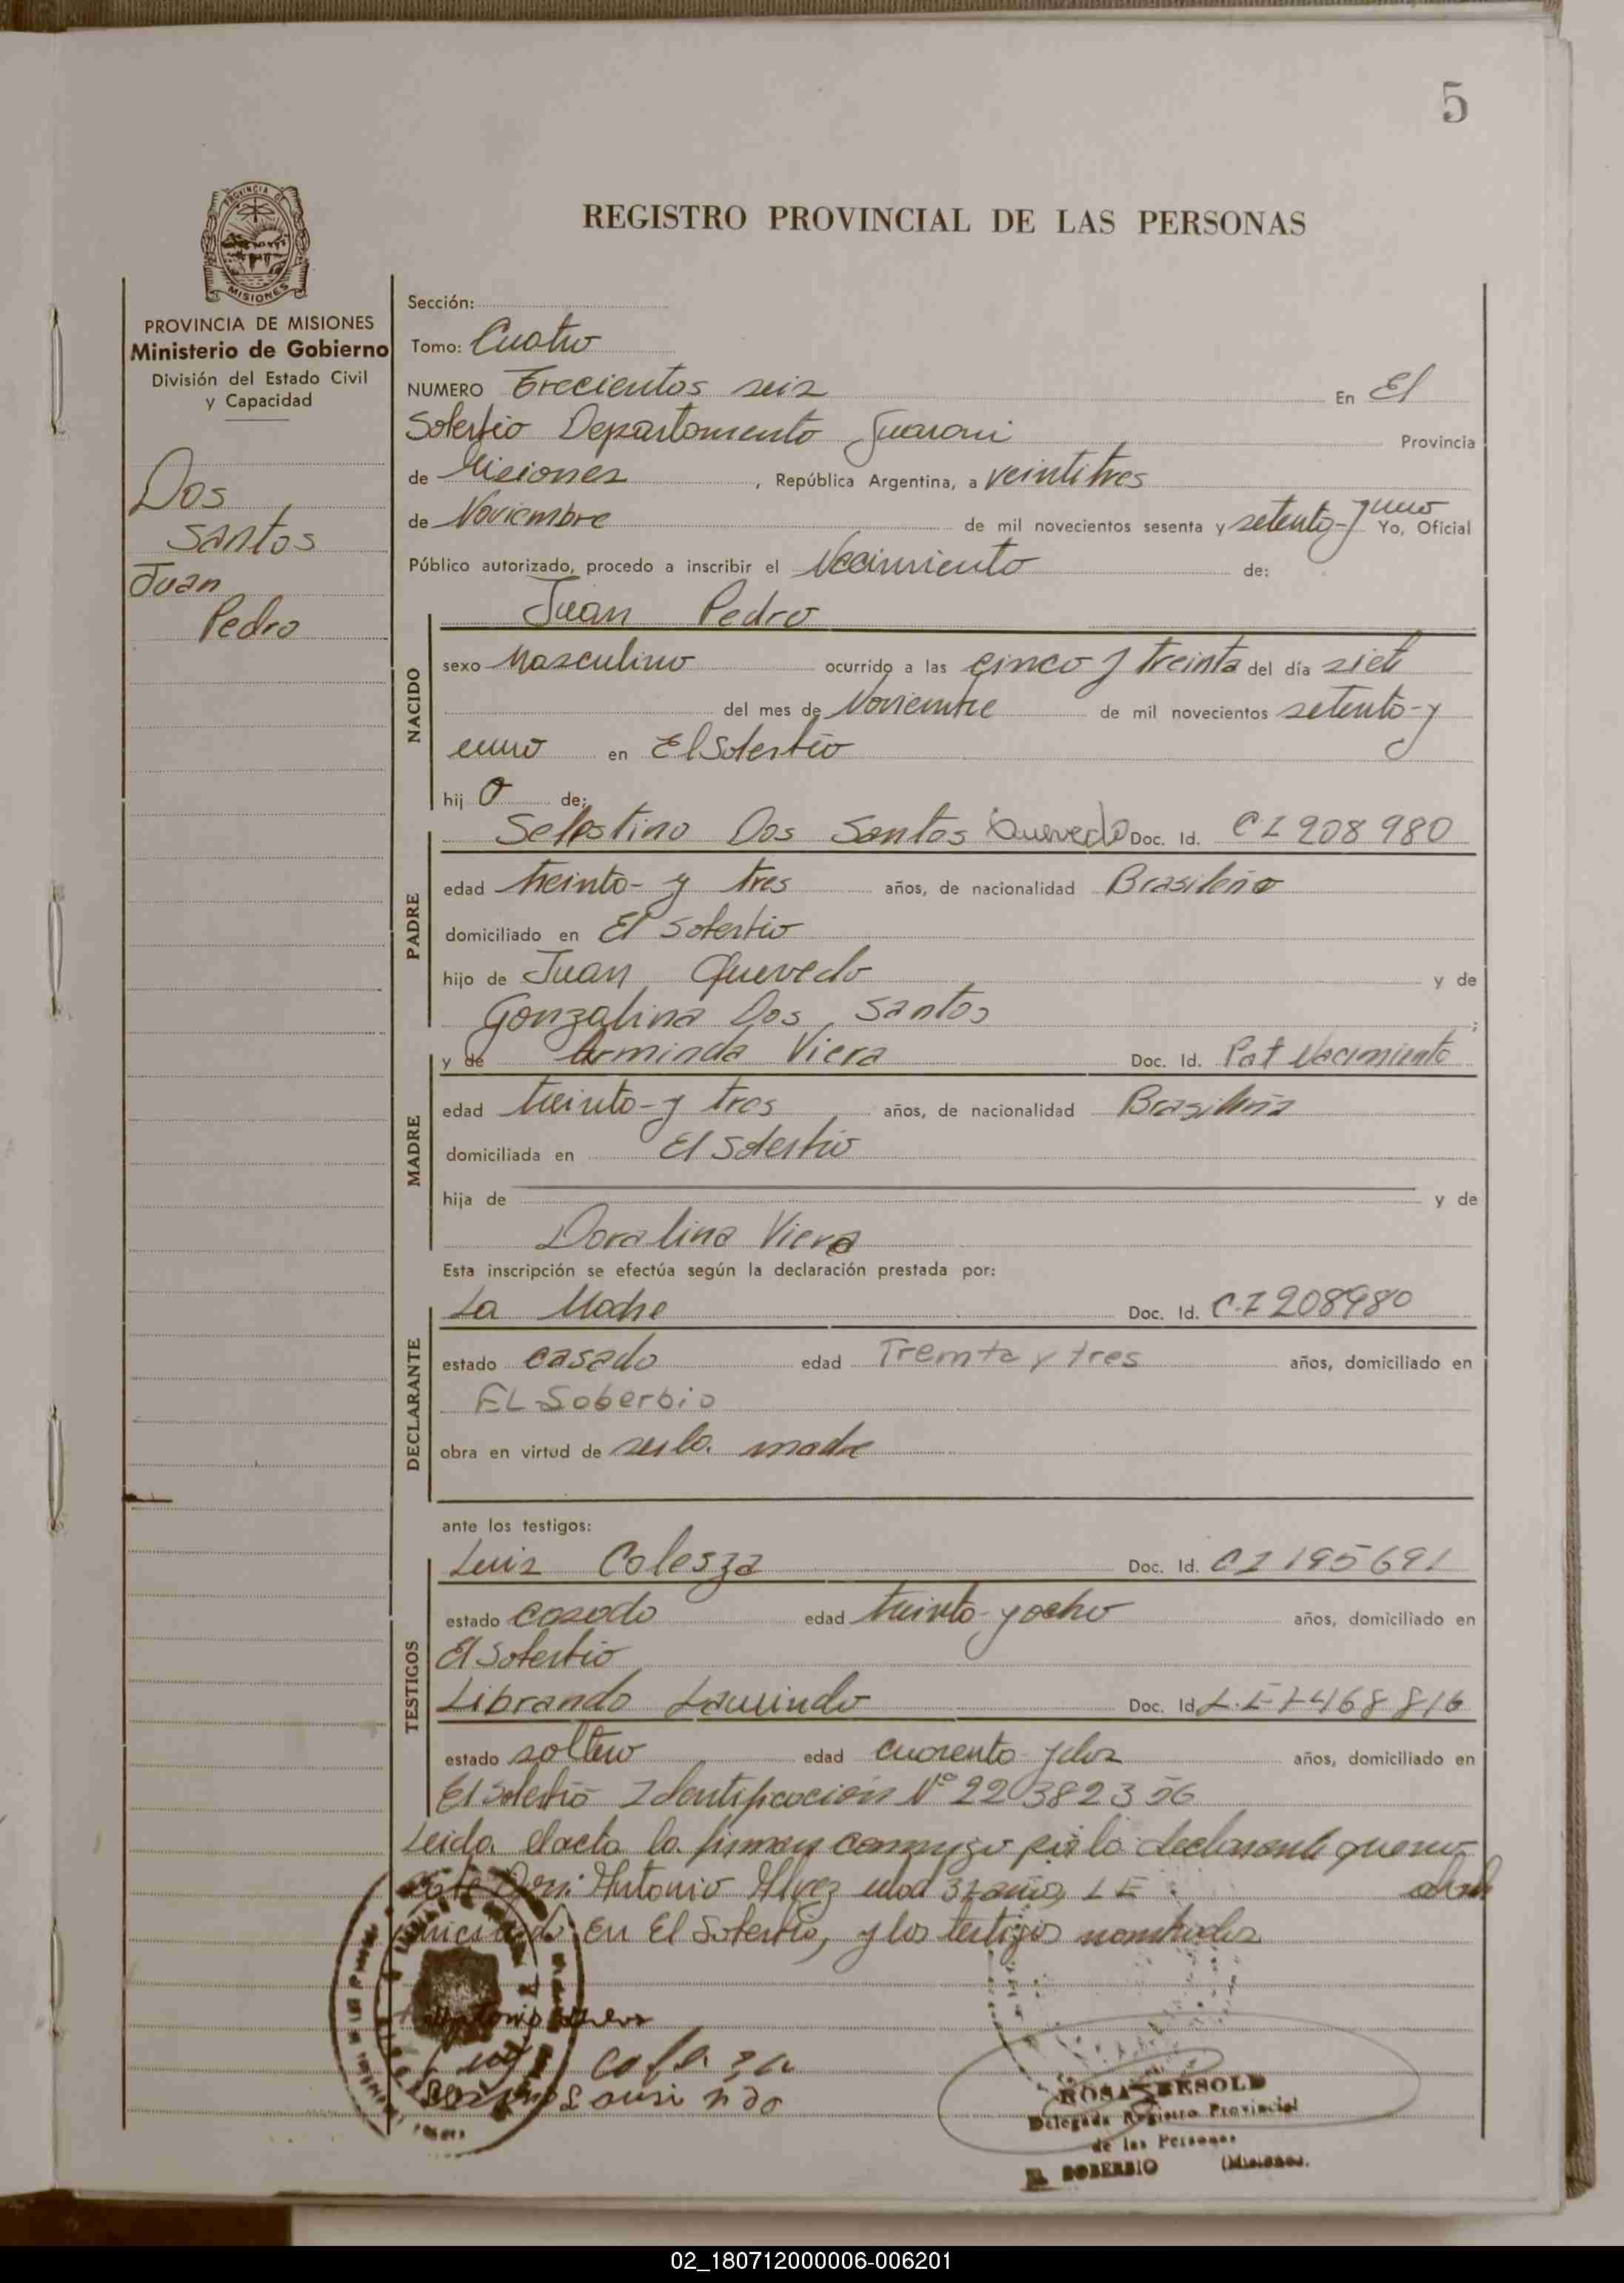 5
PROVINCIA DE
MISIONES
REGISTRO PROVINCIAL DE LAS PERSONAS
PROVINCIA DE MISIONES
Ministerio de Gobierno
División del Estado Civil
y Capacidad
Dos
Santos
Juan
Pedro
Sección:
Tomo: Cuatro
NUMERO Trecientos seis En El
Soberbio Departamento Guarani Provincia
de Misiones, República Argentina, a veintitres
de Noviembre de mil novecientos sesenta y setenta y uno Yo, Oficial
Público autorizado, procedo a inscribir el Nacimiento de:
Juan Pedro
NACIDO
sexo Masculino ocurrido a las cinco y treinta del día siete
del mes de Noviembre de mil novecientos setenta y
uno en El Soberbio
hij o de:
Selestino Dos Santos Quevedo Doc. Id. CI 208980
PADRE
edad treinta y tres años, de nacionalidad Brasileño
domiciliado en El Soberbio
hijo de Juan Quevedo y de
Gonzalina Dos Santos;
y de Arminda Viera Doc. Id. Pat Nacimiento
MADRE
edad treinta y tres años, de nacionalidad Brasileña
domiciliada en El Soberbio
hija de y de
Doralina Viera
Esta inscripción se efectúa según la declaración prestada por:
La Madre Doc. Id. C.I 208980
DECLARANTE
estado casado edad Treinta y tres años, domiciliado en
EL Soberbio
obra en virtud de ser la madre
ante los testigos:
Luis Colesza Doc. Id. CI 195691
TESTIGOS
estado casado edad treinta y ocho años, domiciliado en
El Soberbio
Librando Lauindo Doc. Id. L.E 7468816
estado soltero edad cuarenta y dos años, domiciliado en
El Soberbio Identificación Nº 220382356
Leida el acta la firman conmigo por la declarante que no
Antonio Alvez edad 37 años, LE
En El Soberbio, y los testigos nombrados
ROSA BESOLD
Delegada Registro Provincial
de las Personas
EL SOBERBIO (Misiones.
02_180712000006-006201